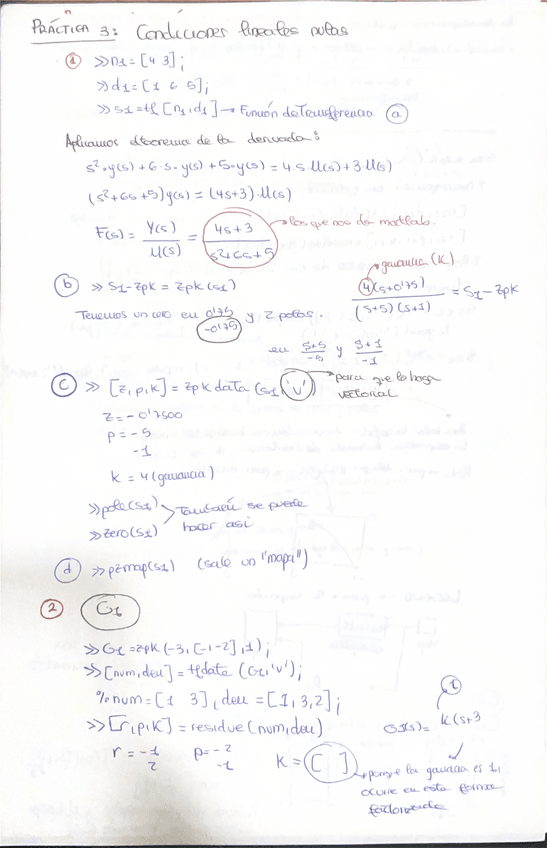 PRÁCTICA 3: Condiciones lineales nulas
① >>n1=[4 3];
>>d1=[1 6 5];
>>s1=tf[n1,d1] → Función de Transferencia (a)
Aplicamos el teorema de la derivada:
s²·y(s)+6·s·y(s)+5·y(s)=4·s·U(s)+3U(s)
(s²+6s+5)y(s)=(4s+3)·U(s)
F(s)= Y(s)/U(s) = 4s+3/s²+6s+5 → lo que nos da matlab.
(b) >> S1-zpk = zpk(s1)
ganancia (K)
4(s+0'75)/(s+5)(s+1) = S1-zpk
Tenemos un cero en 0'75 y 2 polos.
-0'75
en s+5/-5 y s+1/-1
(c) >> [z,p,k]=zpkdata(s1,'v') → para que lo haga
vectorial
z=-0'7500
p=-5
-1
k=4(ganancia)
>>pole(s1)
>>zero(s1)
También se puede
hacer así
(d) >>pzmap(s1) (sale un "mapa")
② G1
>>G1=zpk(-3,[-1-2],1);
>>[num,den]=tfdata(G1,'v');
%num=[1 3], den=[1,3,2];
>>[r,p,k]=residue(num,den)
①
G1(s)= K(s+3
r=-1
2
p=-2
-1
K=[ ]
→ porque la ganancia es 1,
ocurre en esta forma
factorizada